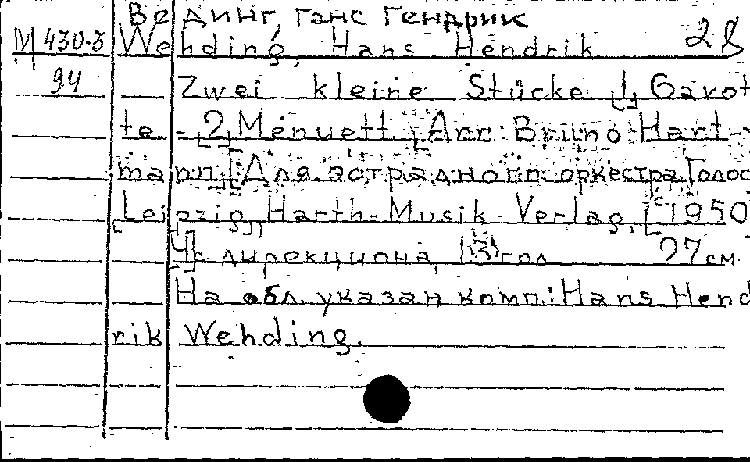 Вединг, Ганс Гендрик
М 430-3 Wehding, Hans Hendrik 28
94 Zwei kleine Stücke [1] Gavot
te - [2] Menuett. Arr: Bruno Hart-
mann. [Для эстрадного оркестра. Голос
[Leipzig], Harth-Musik-Verlag, [1950
4] с. дирекциона, 13 гол 27 см.
На обл. указан комп.: Hans Hend
rik Wehding.